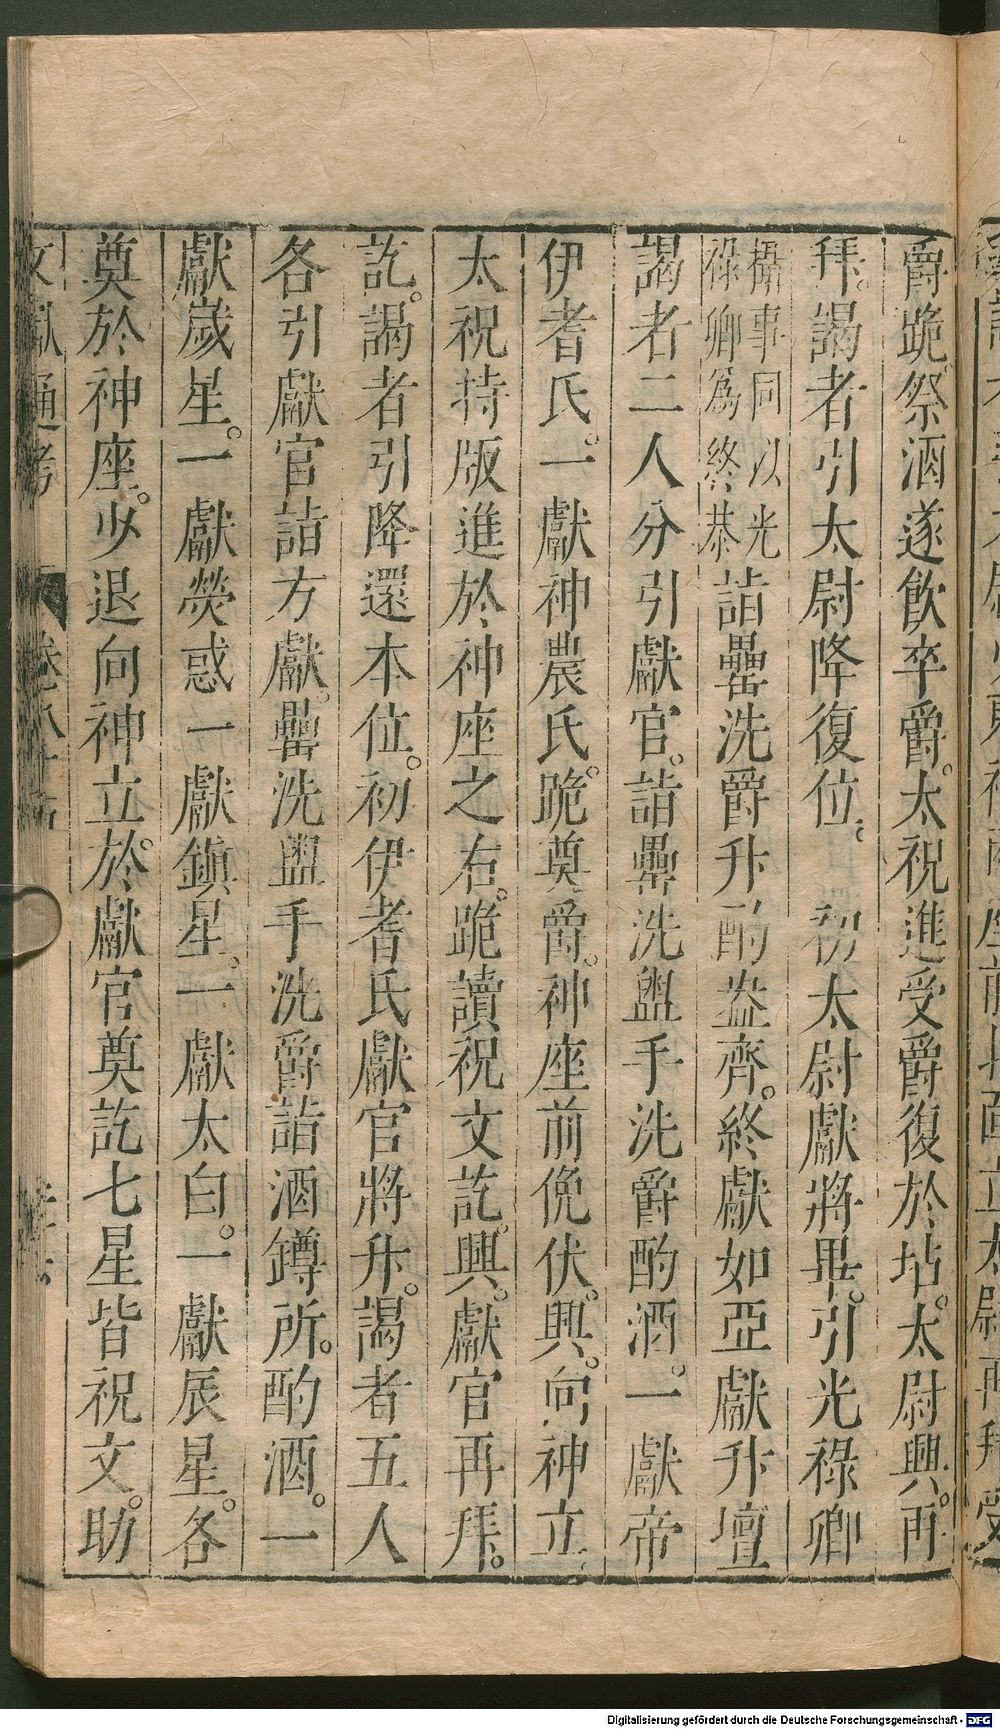 爵跪祭酒遂飲卒爵。太祝進受爵復於坫。太尉興。再
拜。謁者引太尉降復位。初太尉獻將畢。引光祿卿
攝事同以光
祿卿爲終恭
詣罍洗爵升酌盎齊。終獻如亞獻升壇
謁者二人分引獻官。詣罍洗盥手洗爵酌酒。一獻帝
伊耆氏。一獻神農氏。跪奠爵。神座前俛伏。興。向神立。
太祝持版進於神座之右。跪讀祝文訖。興。獻官再拜。
訖。謁者引降還本位。初伊耆氏獻官將升。謁者五人
各引獻官詣方獻。罍洗盥手洗爵詣酒罇所。酌酒。一
獻歲星。一獻熒惑一獻鎮星。一獻太白。一獻辰星。各
奠於神座。少退向神立。於獻官奠訖七星皆祝文。助
文獻通考
卷八十
Digitalisierung gefördert durch die Deutsche Forschungsgemeinschaft - DFG